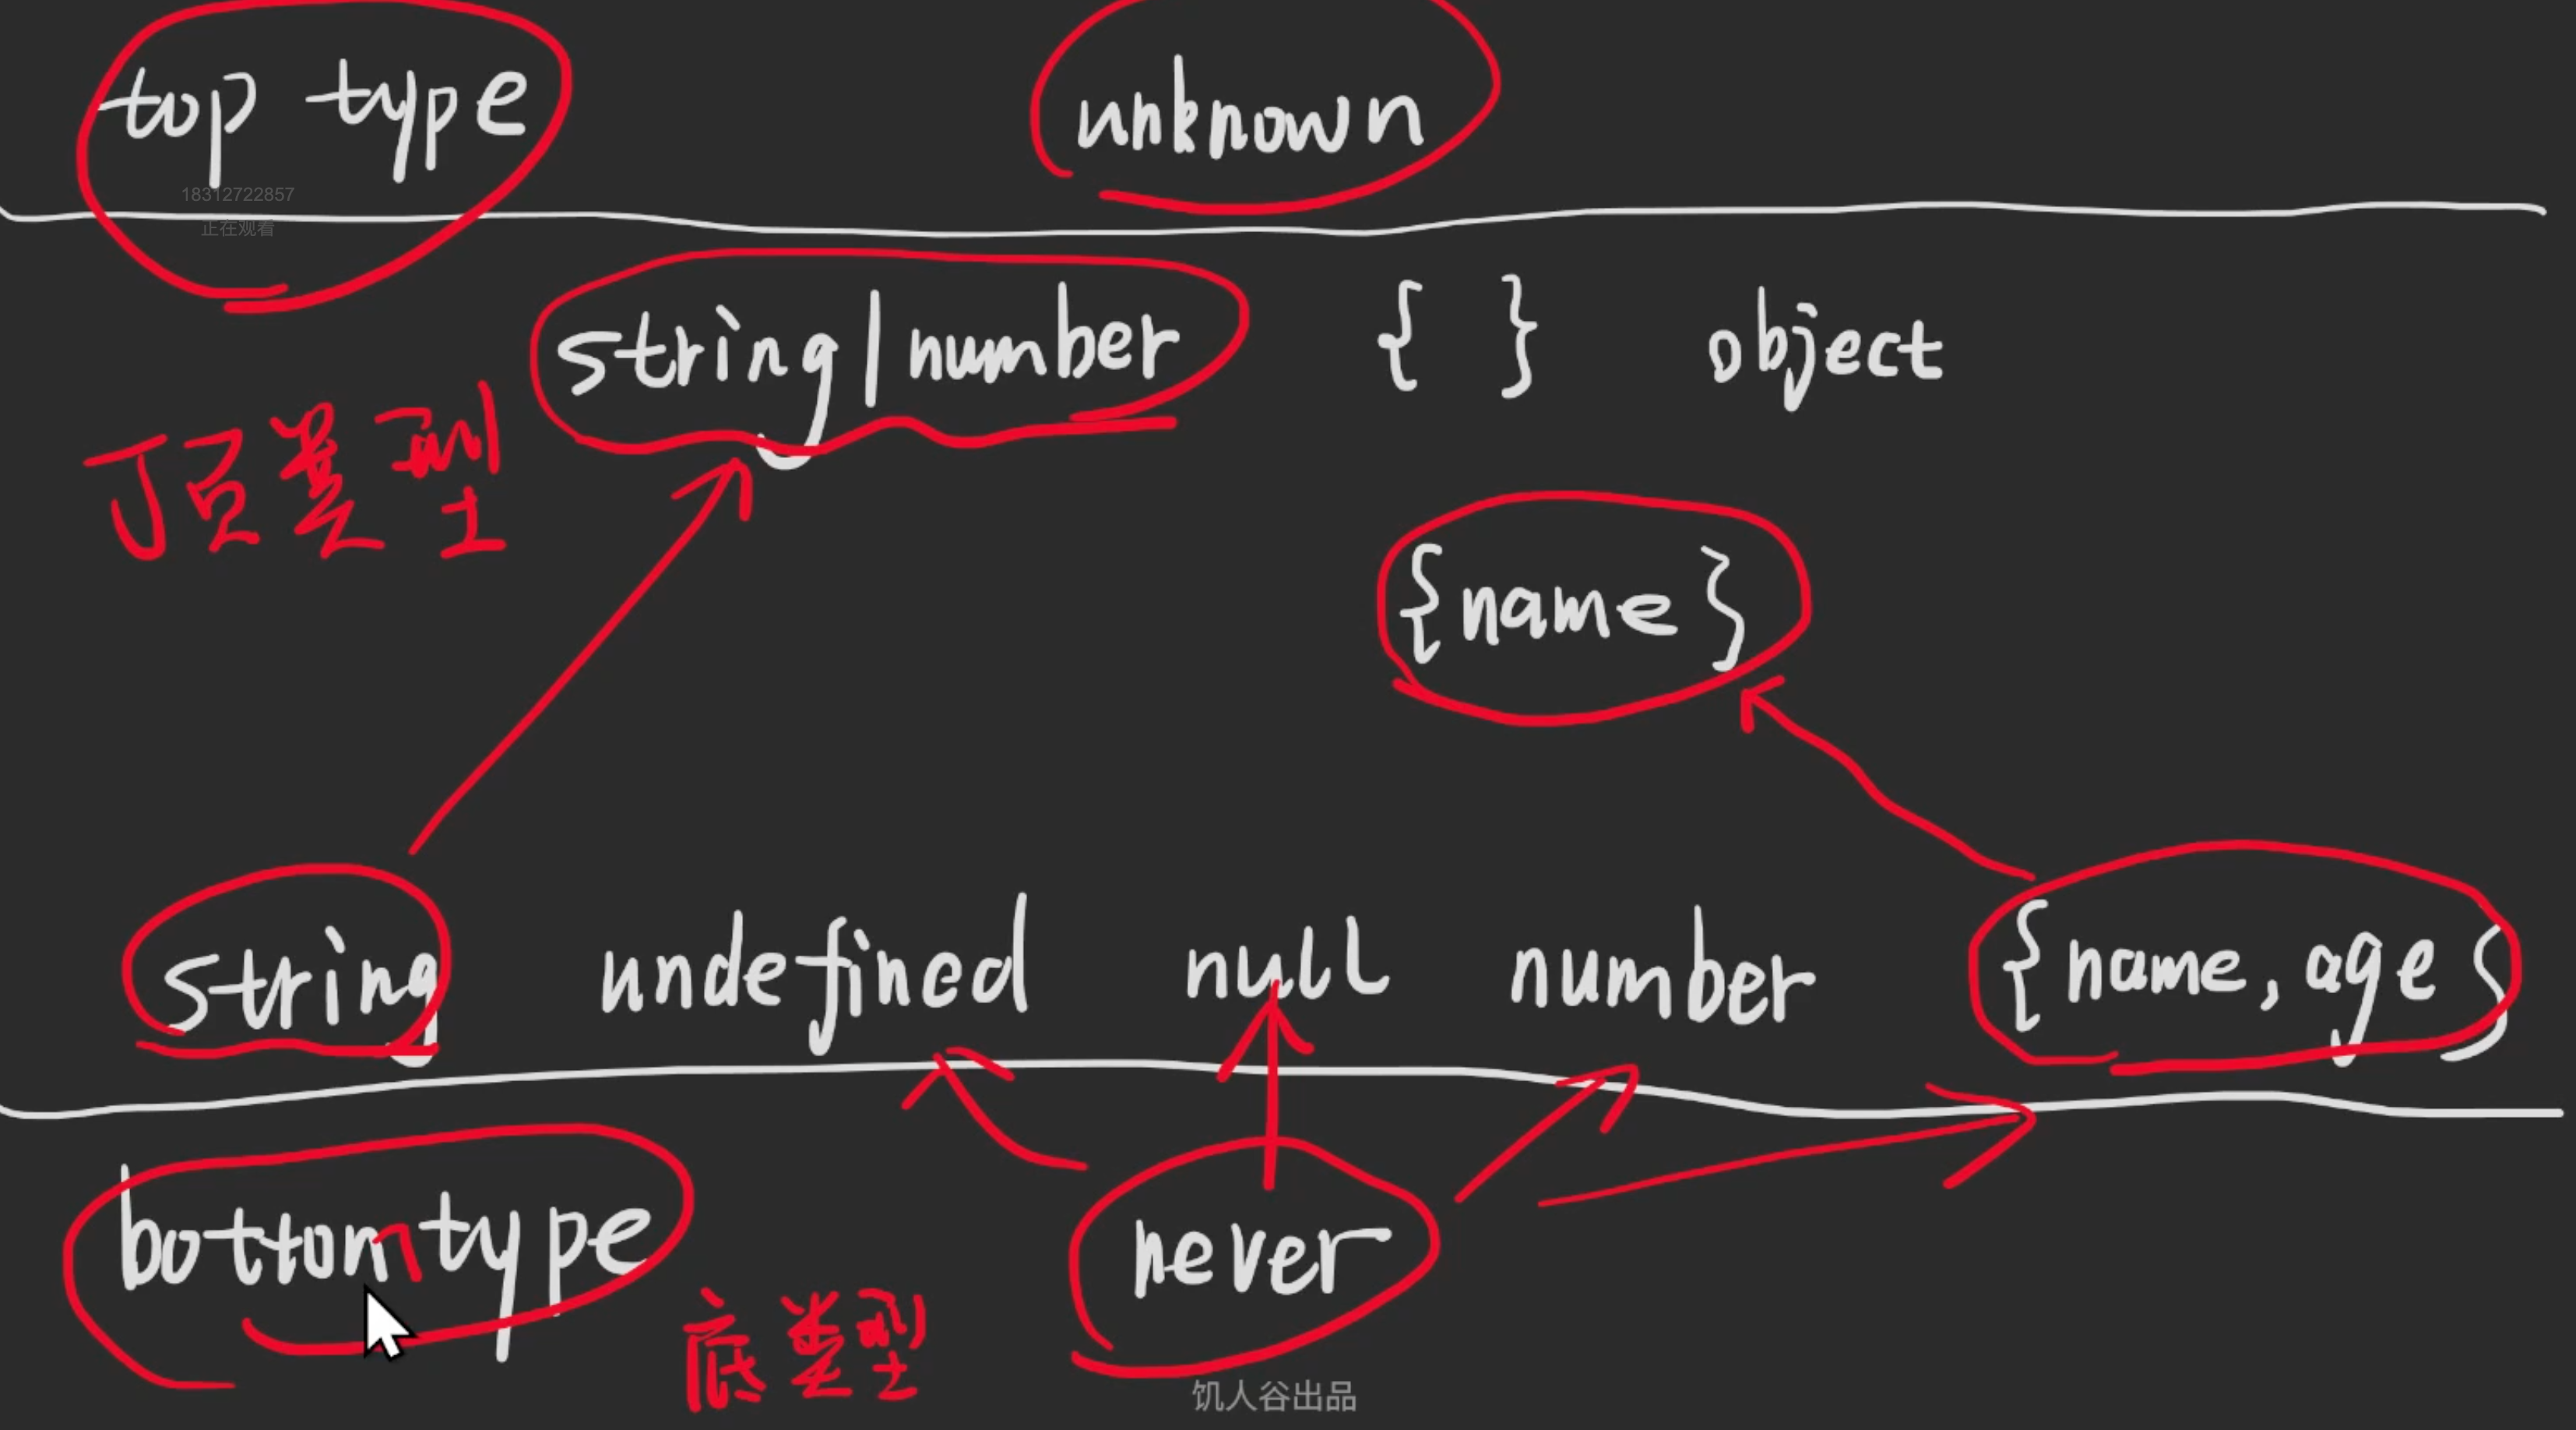 top type
unknown
18312722857
正在观看
string|number
{ }
object
顶类型
{name}
string
undefined
null
number
{name,age}
bottom type
never
底类型
饥人谷出品